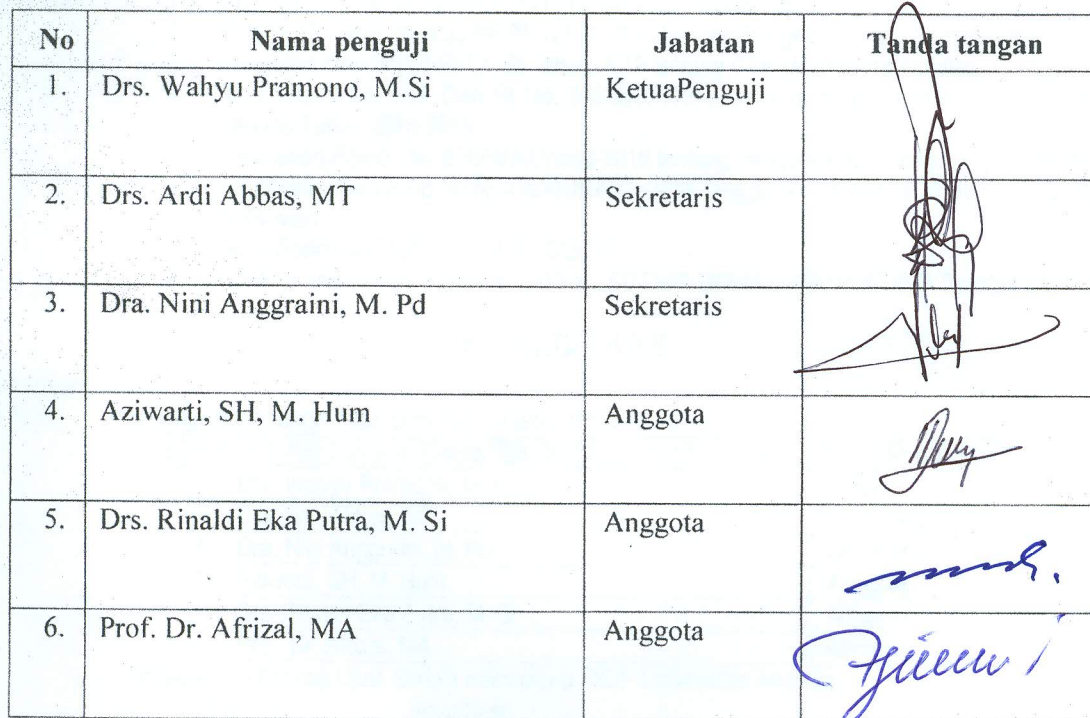 No Nama penguji Jabatan Tanda tangan
1. Drs. Wahyu Pramono, M.Si KetuaPenguji
2. Drs. Ardi Abbas, MT Sekretaris
3. Dra. Nini Anggraini, M. Pd Sekretaris
4. Aziwarti, SH, M. Hum Anggota
5. Drs. Rinaldi Eka Putra, M. Si Anggota
6. Prof. Dr. Afrizal, MA Anggota